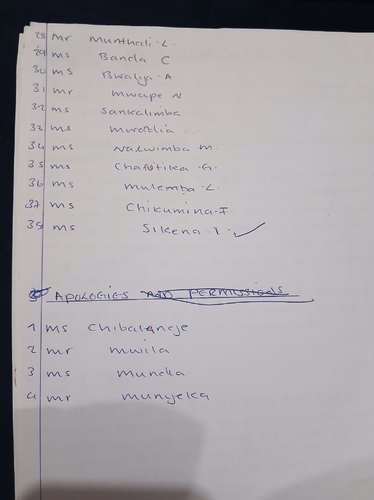 28 Mr Munthali · L ·
29 ms Banda C
30 ms Bwalya · A
31 mr mwape N
32 ms Sankalimba
33 ms
34 ms Nalwimba M.
35 ms Chafutika · G.
36 ms Mulemba · L ·
37 ms Chikumina · F
39 ms Sikena · I ·
APOLOGIES AND PERMISSIONS
1 ms Chibalange
2 mr mwila
3 ms mundia
4 mr munyeka